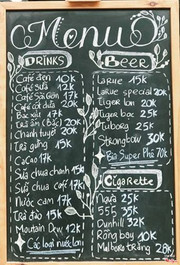 Menu
DRINKS
Cafe đen 10k
Cafe sữa 12k
Cafe Sài Gòn 17k
Cafe cốt dừa 20k
Bạc xỉu 17k
Trà ấm (Bắc) 20k
Chanh tuyết 20k
Trà gừng 15k
CaCao 17k
Sữa chua chanh 15k
Sữa chua cafe 17k
Nước cam 17k
Trà đào 15k
Moutain Dew 12k
Các loại nước lon
Beer
Larue 15k
Larue special 20k
Tiger lon 20k
Tiger bạc 25k
Tuborg 25k
Strongbow 30k
Bia Super Phê 70k
Cigarette
Ngựa 25k
555 35k
Dunhill 32k
Rồng bay 10k
Malboro trắng 28k